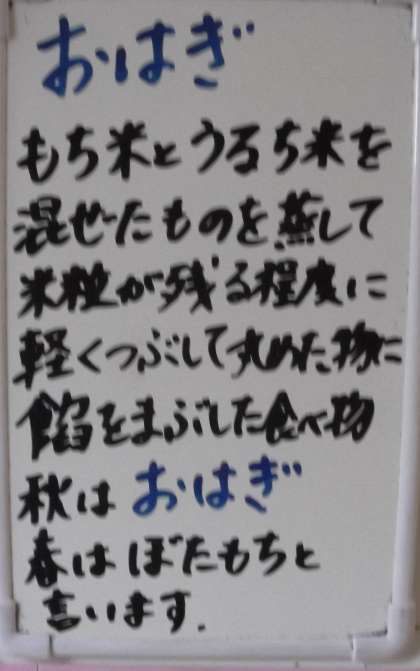 おはぎ
もち米とうるち米を
混ぜたものを蒸して
米粒が残る程度に
軽くつぶして丸めた物に
餡をまぶした食べ物
秋はおはぎ
春はぼたもちと
言います.